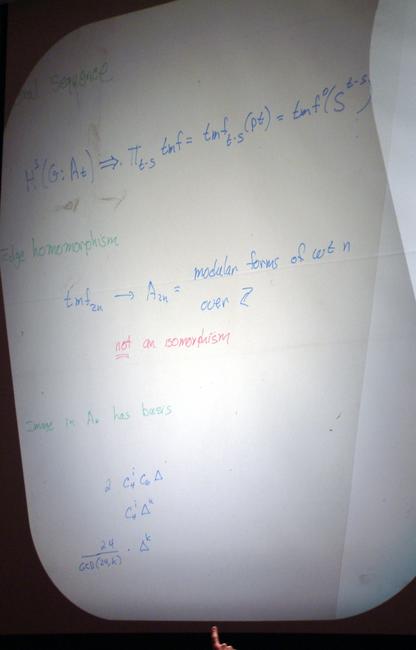 Sequence
H^s(G; A_t) ⇒ π_{t-s} tmf = tmf_{t-s}(pt) = tmf^0(S^{t-s})
Edge homomorphism
tmf_{2n} → A_{2n} = modular forms of wt n
over Z
not an isomorphism
Image in A_* has basis
2 C_4^i C_6 Δ^j
C_4^i Δ^k
24/GCD(24,k) · Δ^k